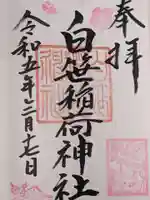 奉拝
白笹稲荷神社
令和五年二月十七日